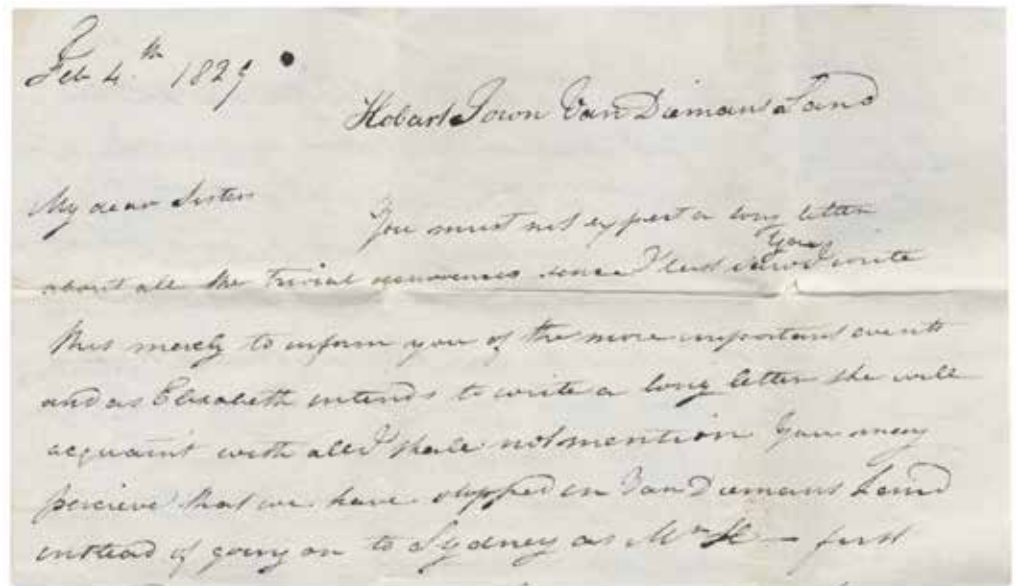 Feb 4th 1829
Hobart Town Van Diemans Land
My dear Sister
You must not expect a long letter
you
about all the trivial occurences since I last saw I write
this merely to inform you of the more important events
and as Elizabeth intends to write a long letter she will
acquaint with all I shall not mention You may
percieve that we have stopped in Van Diemans Land
instead of going on to Sydney as Mr H— first